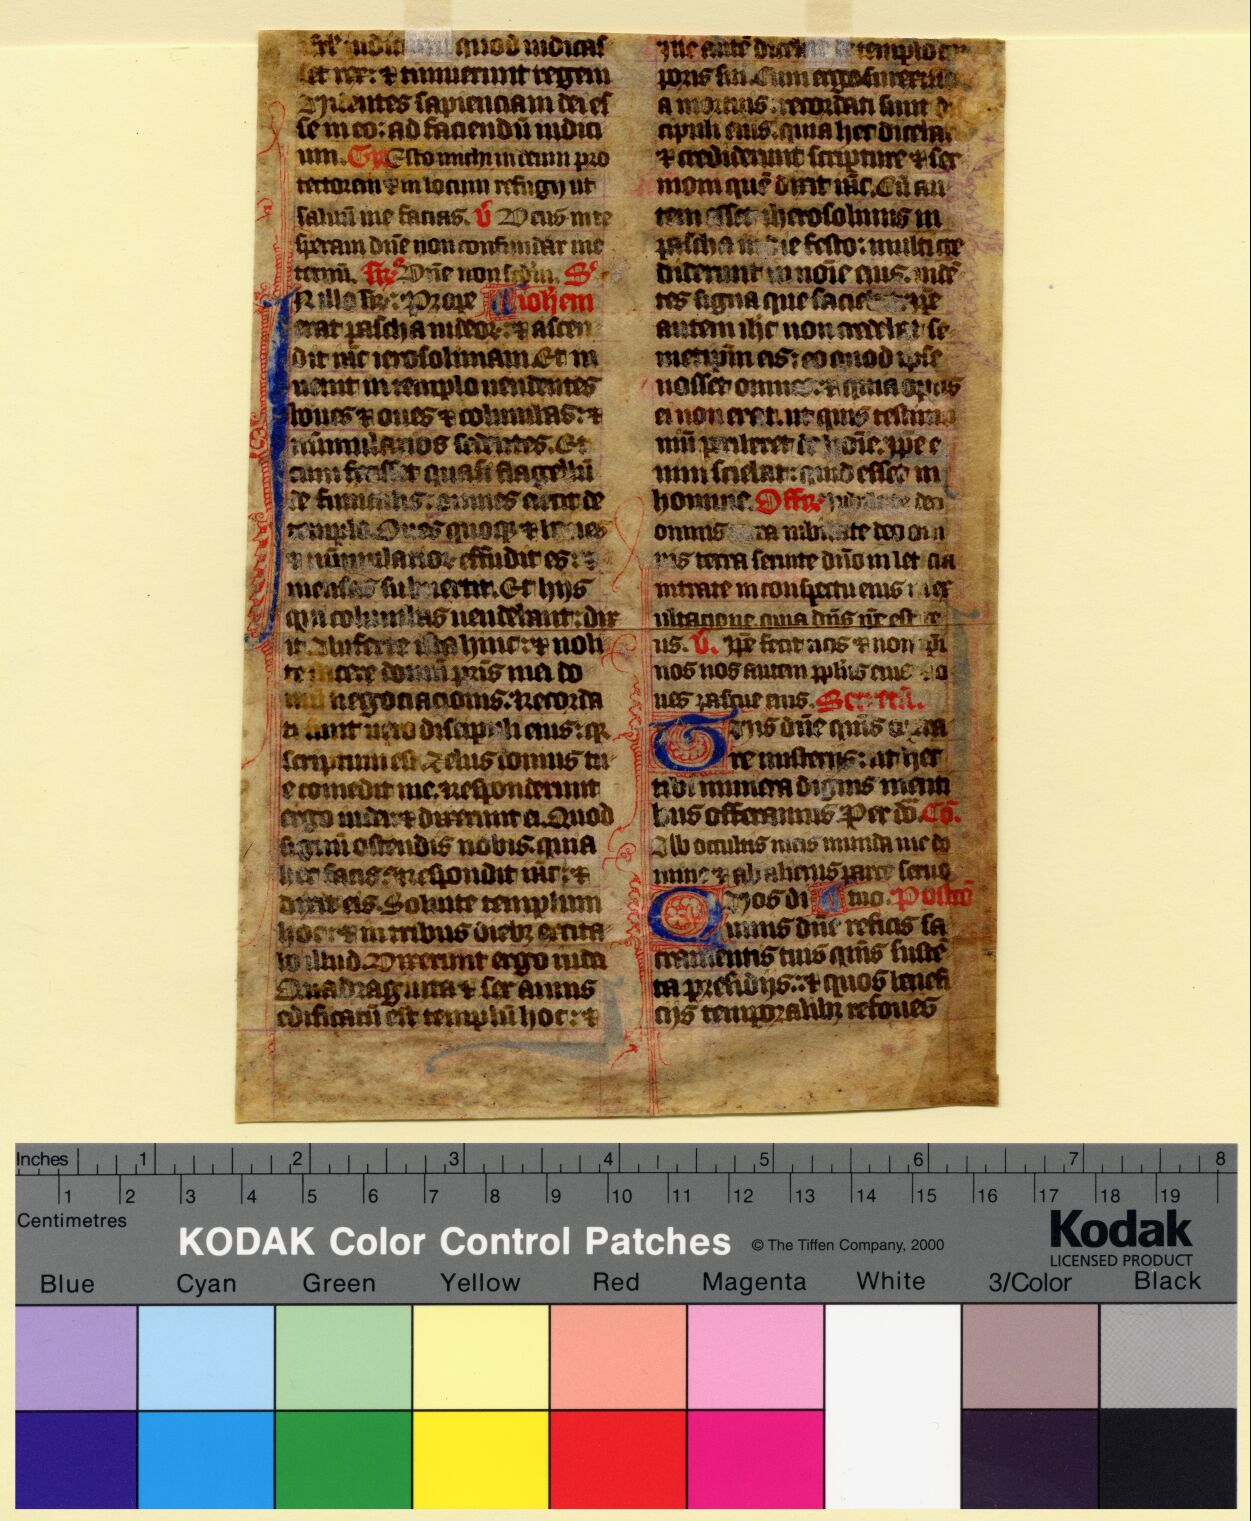 quod iudicas
set rex: & timuerunt regem
videntes sapienciam dei es
se in eo: ad faciendū iudici
um. Gr Esto michi in deum pro
tectorem & in locum refugij ut
saluū me facias. v̄ Deus in te
speraui dn̄e non confundar in e
ternū.
In illo tp̄r: Prope Iohem
erat pascha iudeor: & ascen
dit ih̄c ierosolimam. Et in
uenit in templo uendentes
boues & oues & columbas: &
nūmularios sedentes. Et
cum fecisset quasi flagellū
de funiculis: omnes eiecit de
templo. Oues quoqȝ & boues
& nūmularior effudit es: &
mensas subuertit. Et hijs
qui columbas uendebant: dix
it. Auferte ista hinc: & noli
te facere domū pr̄is mei do
mū negociacionis. Recorda
ti sunt uero discipuli eius: qr
scriptum est Zelus domus tu
e comedit me. Responderunt
ergo iudei: & dixerunt ei. Quod
signū ostendis nobis. quia
hec facis: Respondit ih̄c: &
dixit eis. Soluite templum
hoc: & in tribus diebȝ excita
bo illud. Dixerunt ergo iudei
Quadraginta & sex annis
edificatū est templū hoc: &
ille autē dicebat de templo cor
poris sui. Cum ergo surrexiss
a mortuis: recordati sunt dis
cipuli eius. quia hec dicebat
& crediderunt scripture & ser
moni quē dixit ih̄c. Cū au
tem esset iherosolimis in
pascha in die festo: multi cre
diderunt in noīe eius. uidē
tes signa que faciebat. ip̄e
autem ih̄c non credebat se
metip̄m eis: eo quod ipse
nosset omnes. & quia opus
ei non erat. ut quis testimo
niū perhiberet de hoīe. ip̄e e
nim sciebat: quid esset in
homine. Offr. iubilate deo
omnis terra iubilate deo om
nis terra seruite dn̄o in leticia
intrate in conspectu eius in ex
ultatione quia dn̄s nr̄ est de
us. v̄. Ip̄e fecit nos & non ip̄i
nos nos autem pp̄lus eius & o
ues pascue eius. Secretā.
dn̄e quis
re misterijs: ut hec
tibi munera dignis menti
bus offeramus. Per dō. Cō.
Ab occultis meis munda me do
mine & ab alienis parce seruo
tuo. Postcō
Quos di
uinis dn̄e reficis sa
cramentis tuis qm̄s susten
ta presidijs: & quos benefi
cijs temporalibȝ refoues
Inches 1 2 3 4 5 6 7 8
1 2 3 4 5 6 7 8 9 10 11 12 13 14 15 16 17 18 19
Centimetres
KODAK Color Control Patches © The Tiffen Company, 2000
Kodak
LICENSED PRODUCT
Blue Cyan Green Yellow Red Magenta White 3/Color Black